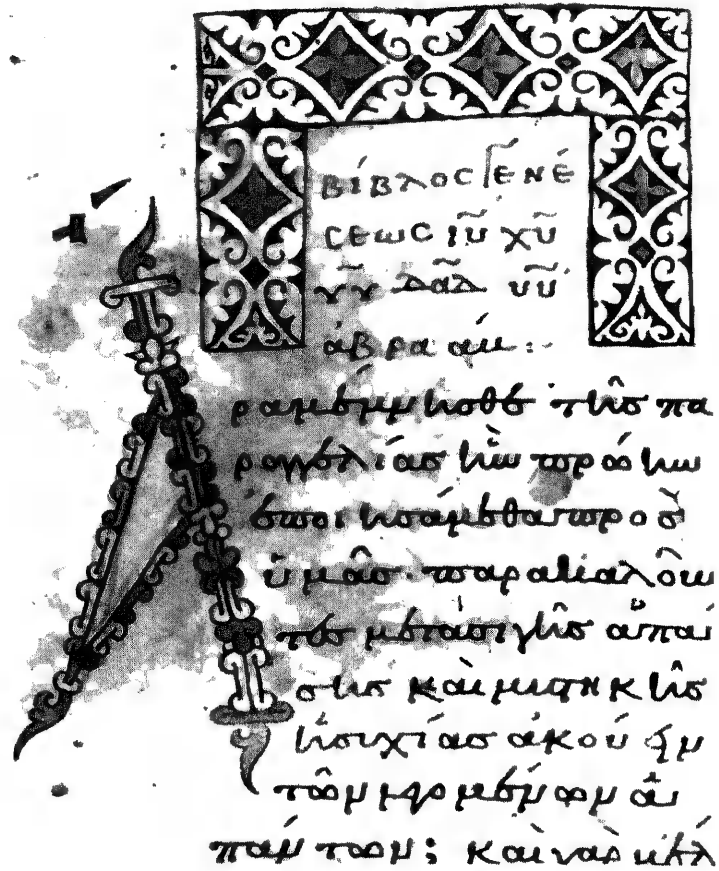 βίβλος γενέ
σεως ἰῦ χῦ
υῦ δᾶδ υῦ
ἀβραάμ :-
Ἆρα μέμνησθε τῆς πα
ραγγελίας ἣν πρώην
ἐποιησάμεθα πρὸς
ὑμᾶς· παρακαλοῦν
τες μετὰ σιγῆς ἁπά
σης καὶ μυστικῆς
ἡσυχίας ἀκούειν
τῶν λεγομένων ἁ
πάντων; καὶ γὰρ μέλ